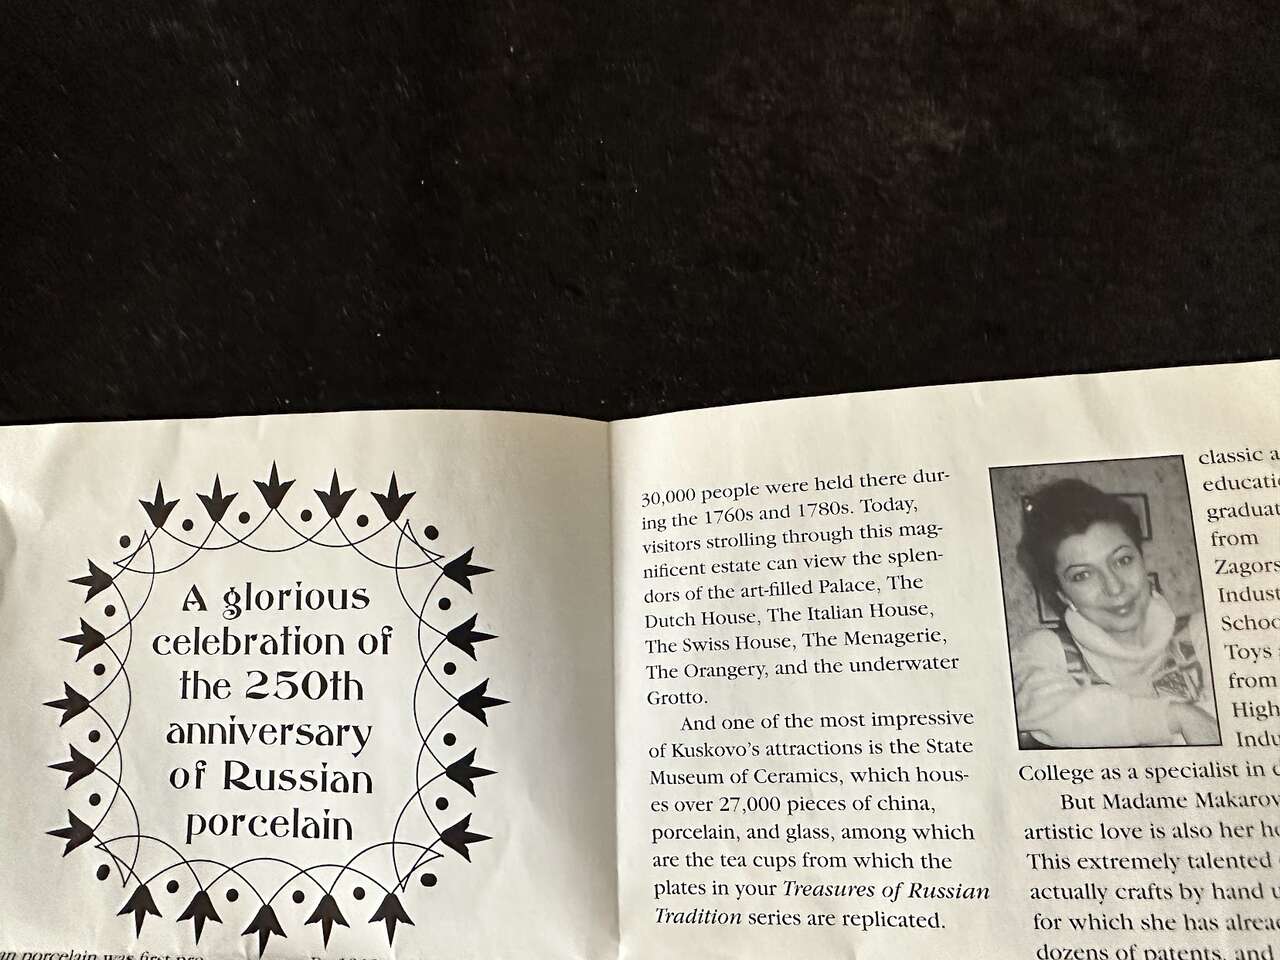 A glorious
celebration of
the 250th
anniversary
of Russian
porcelain
porcelain was first
30,000 people were held there dur-
ing the 1760s and 1780s. Today,
visitors strolling through this mag-
nificent estate can view the splen-
dors of the art-filled Palace, The
Dutch House, The Italian House,
The Swiss House, The Menagerie,
The Orangery, and the underwater
Grotto.
And one of the most impressive
of Kuskovo's attractions is the State
Museum of Ceramics, which hous-
es over 27,000 pieces of china,
porcelain, and glass, among which
are the tea cups from which the
plates in your Treasures of Russian
Tradition series are replicated.
classic
educati
graduat
from
Zagors
Indust
Schoo
Toys
from
High
Indu
College as a specialist in
But Madame Makarov
artistic love is also her
This extremely talented
actually crafts by hand
for which she has alrea
dozens of patents, and